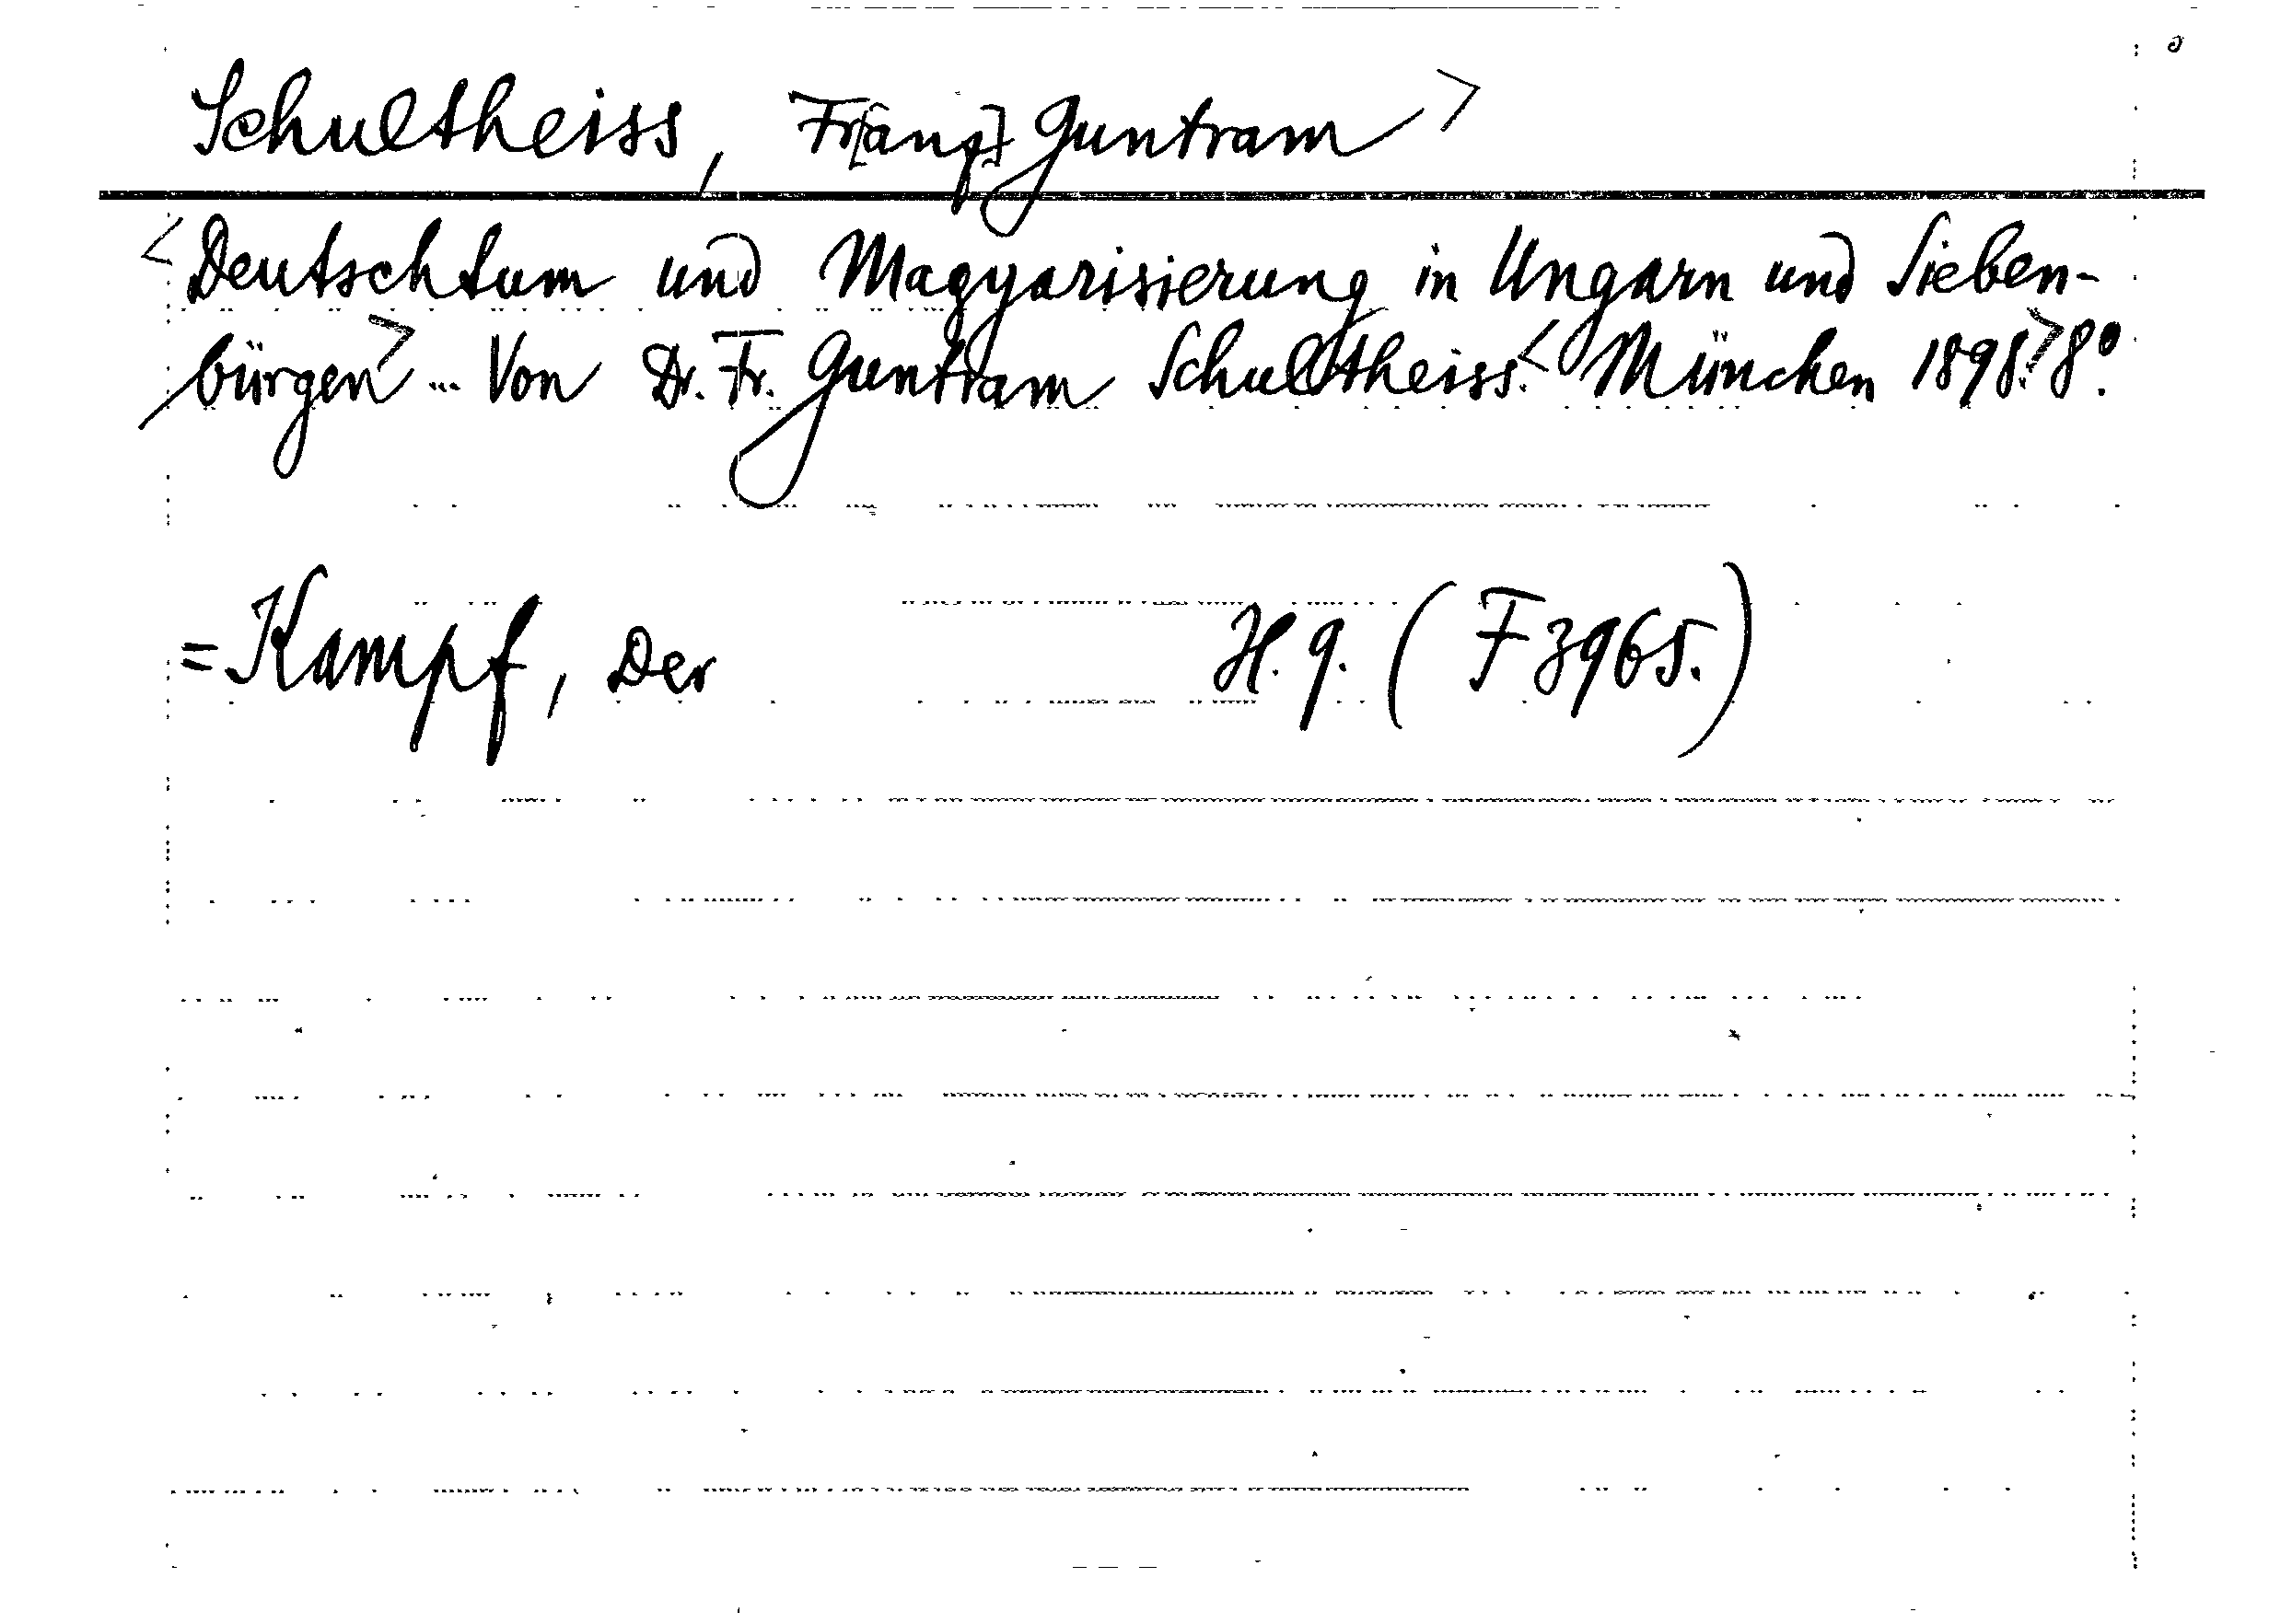 Schultheiss, Fr[anz] Guntram>
<Deutschtum und Magyarisierung in Ungarn und Sieben-
bürgen> ... Von Dr. Fr. Guntram Schultheiss.< München 1898.> 8º.
=Kampf, Der H. 9. (F 3965.)